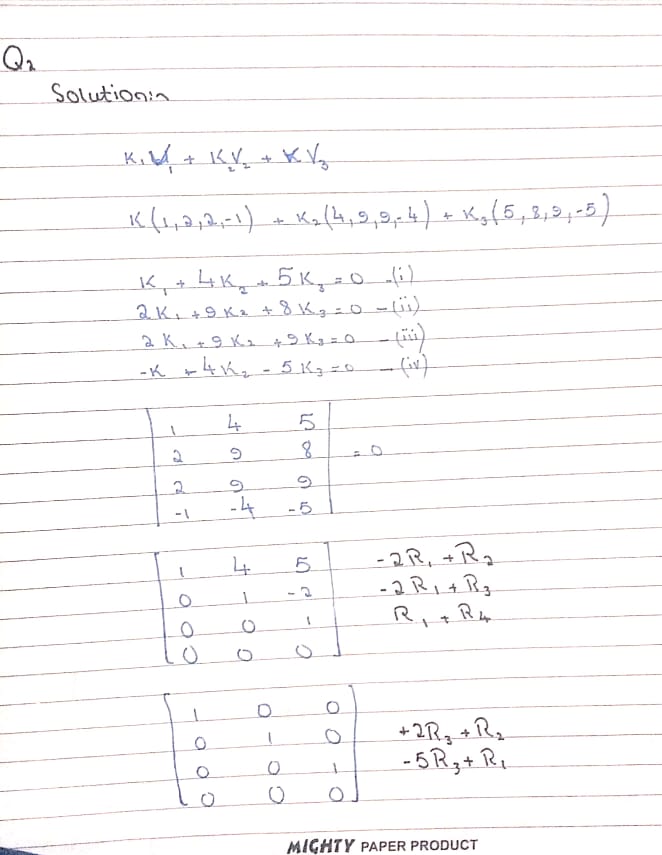 Q2
Solution:~
K1V1 + K2V2 + KV3
K(1,2,2,-1) + K2(4,9,9,-4) + K3(5,8,9,-5)
K1 + 4K2 + 5K3 = 0 -(i)
2K1 + 9K2 + 8K3 = 0 -(ii)
2K1 + 9K2 + 9K3 = 0 -(iii)
-K + 4K2 - 5K3 = 0 -(iv)
1 4 5
2 9 8 = 0
2 9 9
-1 -4 -5
1 4 5 -2R1 + R2
0 1 -2 -2R1 + R3
0 0 1 R1 + R4
0 0 0
1 0 0
0 1 0 +2R3 + R2
0 0 1 -5R3 + R1
0 0 0
MIGHTY PAPER PRODUCT